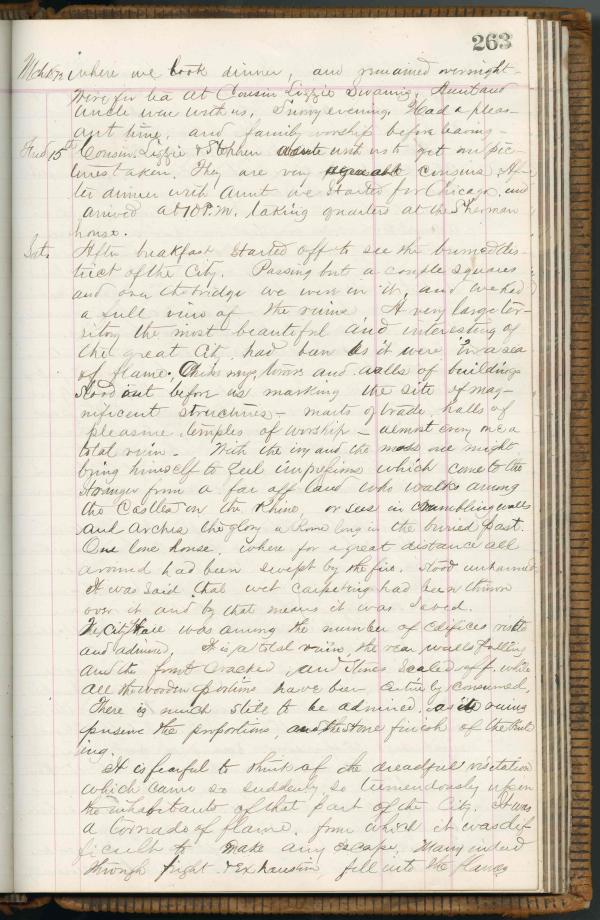 263
where we took dinner, and remained overnight.
Were for tea at Cousin Lizzie Swaing. Aunt and
Uncle were with us, Snowy evening. Had a pleas-
ant time, and family worship before leaving -
15th Cousin Lizzie & Stephen with us to get our pic-
tures taken. They are very agreeable cousins. Af-
ter dinner with Aunt we started for Chicago, and
arrived at 10 P.M. taking quarters at the Sherman
house.
Sat. After breakfast started off to see the burned dis-
trict of the City. Passing but a couple squares
and over the bridge we were in it, and we had
a full view of the ruins. A very large ter-
ritory the most beautiful and interesting of
the great City had been as it were in a sea
of flame. Chimneys, towers and walls of buildings
stood out before us marking the site of mag-
nificent structures - marts of trade, halls of
pleasure, temples of worship - almost every one a
total ruin - With the ivy and the moss one might
bring himself to feel impressions which come to the
stranger from a far off land who walks among
the Castles on the Rhine, or sees in crumbling walls
and Arches the glory a Rome long in the buried past.
One lone house, where for a great distance all
around had been swept by the fire, stood unharmed
It was said that wet carpeting had been thrown
over it and by that means it was saved.
The City Hall was among the number of edifices
and admired. It is a total ruin, the rear walls falling
and the front cracked, and stones scaled off, while
all the wooden portions have been entirely consumed,
There is much still to be admired, as its ruins
preserve the proportions, and the stone finish of the build
ing.
It is fearful to think of the dreadful visitation
which came so suddenly, so tremendously upon
the inhabitants of that part of the City. It was
a tornado of flame, from which it was dif-
ficult to make any escape. Many indeed
through fright & exhaustion fell into the flames